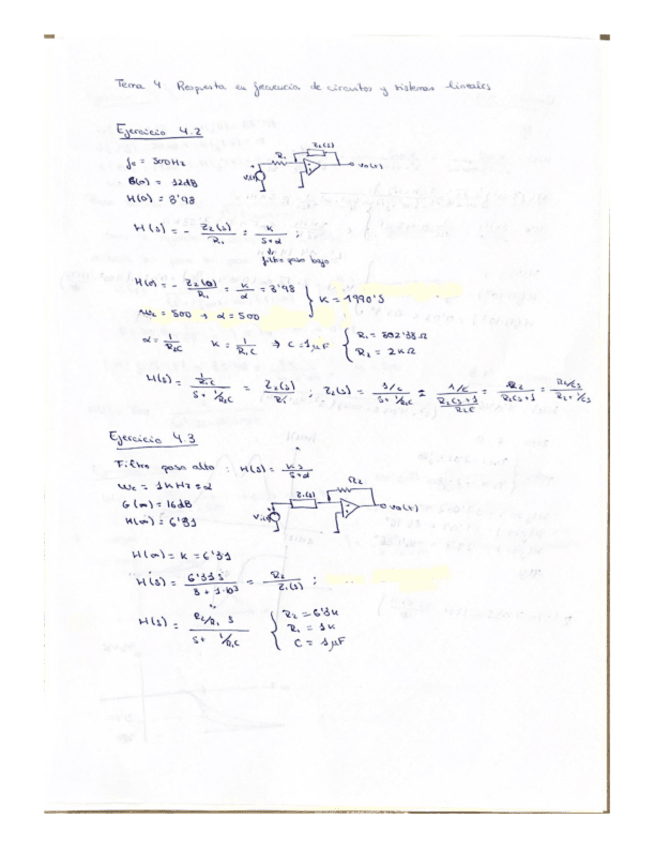 Tema 4 Respuesta en frecuencia de circuitos y sistemas lineales
Ejercicio 4.2
fc = 500Hz
G(0) = 12dB
H(0) = 3'98
R1 Z2(s) vo(t)
H(s) = - Z2(s)/R1 = K/(s+α) ;
filtro paso bajo
H(0) = - Z2(0)/R1 = K/α = 3'98 } K = 1990'5
ωc = 500 → α = 500
α = 1/(R2C) K = 1/(R1C) → C = 1μF { R1 = 502'38Ω
R2 = 2KΩ
H(s) = (1/(R1C))/(s + 1/(R2C)) = Z2(s)/R1 ; Z2(s) = (1/C)/(s + 1/(R2C)) = (1/C)/((R2Cs+1)/(R2C)) = R2/(R2Cs+1) = (R2/Cs)/(R2 + 1/Cs)
Ejercicio 4.3
Filtro paso alto : H(s) = Ks/(s+α)
ωc = 1KHz = α
G(∞) = 16dB
H(∞) = 6'31
Z1(s) R2 vo(t)
H(∞) = K = 6'31
H(s) = 6'31s/(s + 1·10³) = R2/Z1(s) ;
H(s) = (R2/R1 s)/(s + 1/(R1C)) { R2 = 6'3K
R1 = 1K
C = 1μF